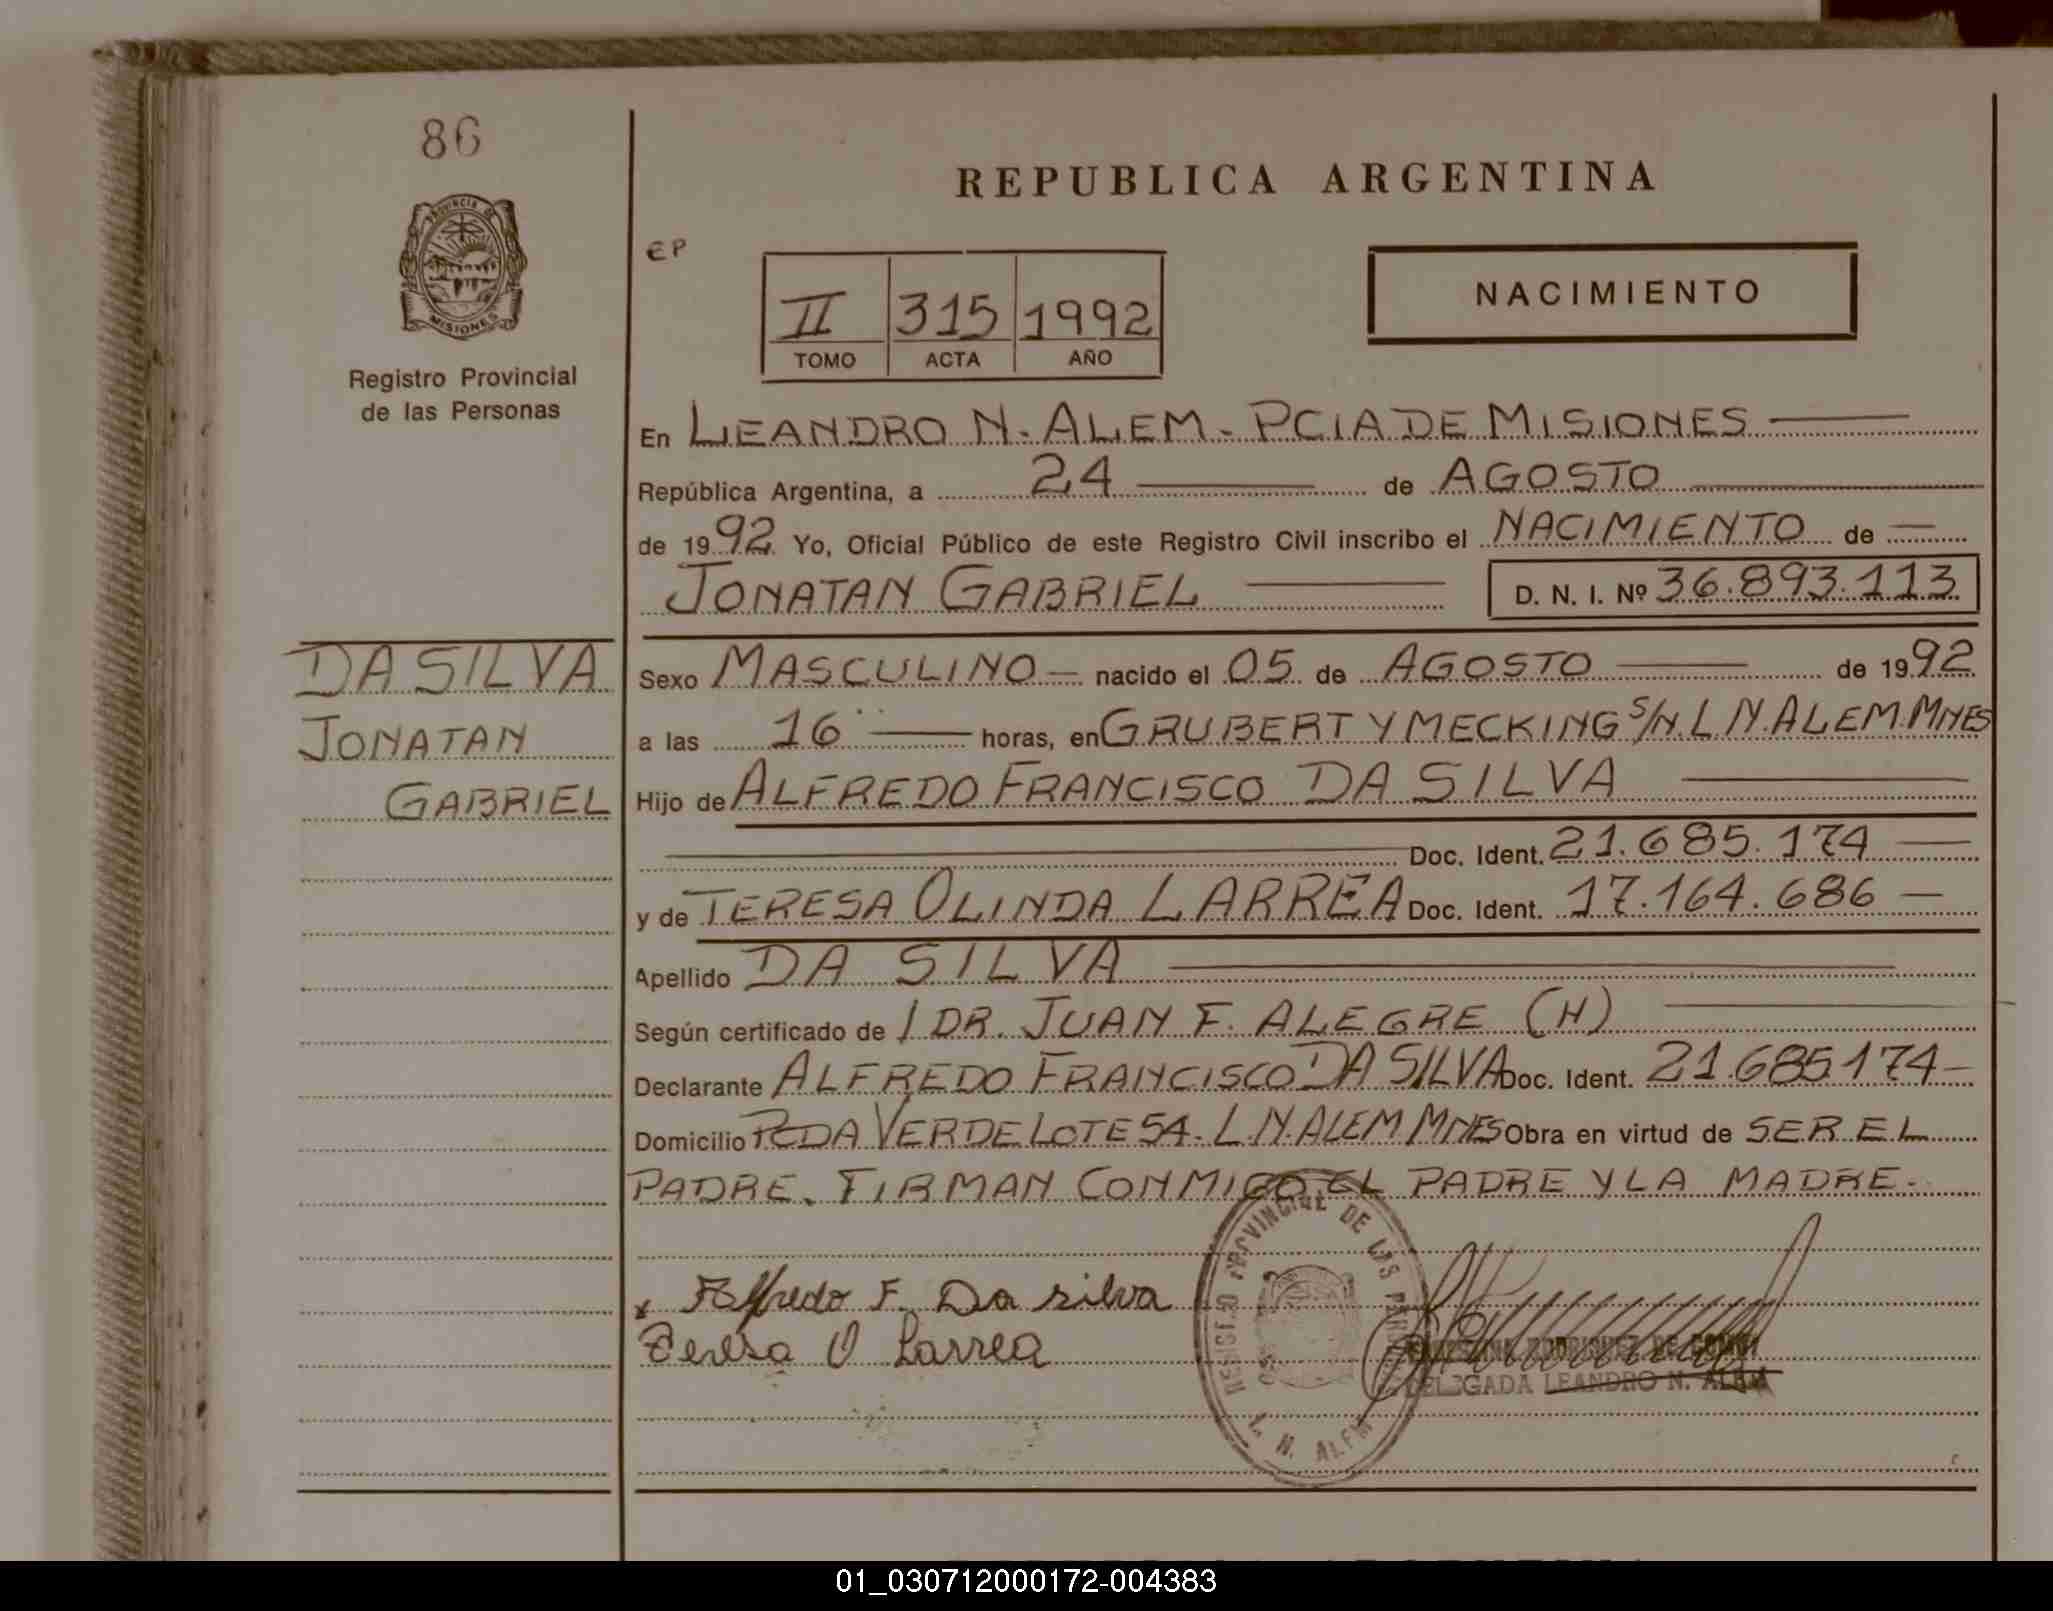 86
PROVINCIA DE
MISIONES
Registro Provincial
de las Personas
REPUBLICA ARGENTINA
EP
II 315 1992
TOMO ACTA AÑO
NACIMIENTO
En LEANDRO N. ALEM - PCIA DE MISIONES
República Argentina, a 24 de AGOSTO
de 1992 Yo, Oficial Público de este Registro Civil inscribo el NACIMIENTO de
JONATAN GABRIEL D. N. I. Nº 36.893.113
DA SILVA
JONATAN
GABRIEL
Sexo MASCULINO nacido el 05 de AGOSTO de 1992
a las 16 horas, en GRUBERT Y MECKING S/N. L N. ALEM. MNES
Hijo de ALFREDO FRANCISCO DA SILVA
Doc. Ident. 21.685.174
y de TERESA OLINDA LARREA Doc. Ident. 17.164.686
Apellido DA SILVA
Según certificado de / DR. JUAN F. ALEGRE (H)
Declarante ALFREDO FRANCISCO DA SILVA Doc. Ident. 21.685174
Domicilio PCDA VERDE LOTE 54. L.N. ALEM MNES Obra en virtud de SER EL
PADRE. FIRMAN CONMIGO EL PADRE Y LA MADRE.
x Alfredo F. Da silva
Teresa O Larrea
PROVINCIAL DE LAS
L. N. ALEM
RODRIGUEZ DE
DELEGADA LEANDRO N. ALEM
01_030712000172-004383